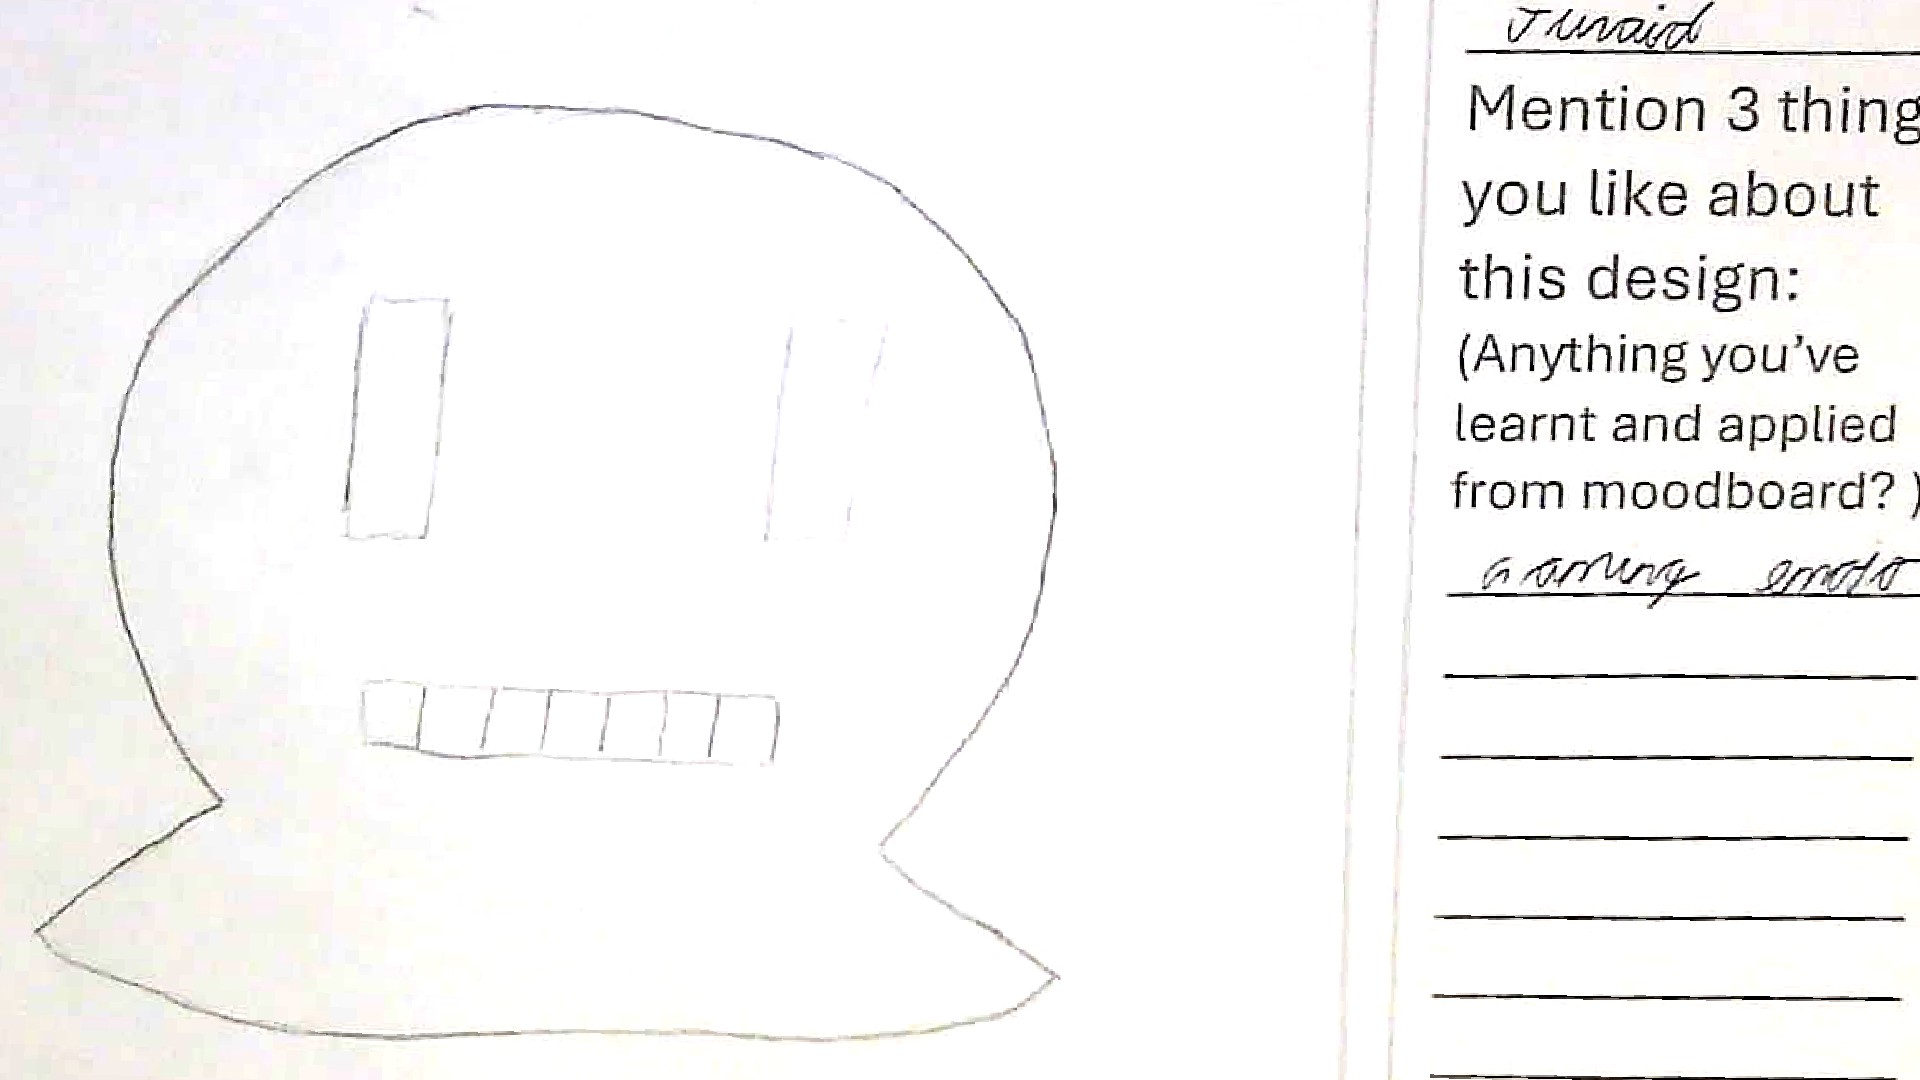 Junaid
Mention 3 thing
you like about
this design:
(Anything you've
learnt and applied
from moodboard? )
Gaming